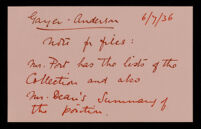 Gayer-Anderson 6/7/36
Note for files:
Mr. Port has the lists of the
Collection and also
Mr. Dean's Summary of
the position.